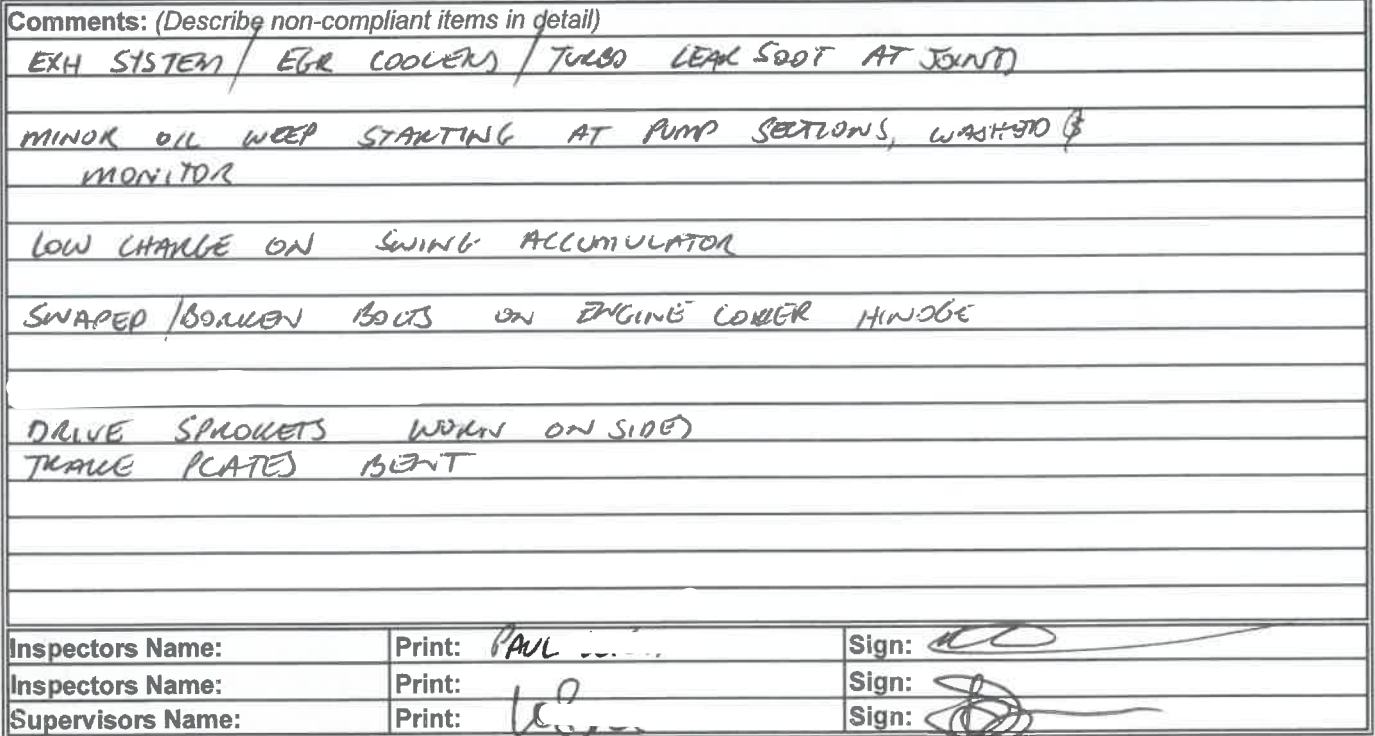 Comments: (Describe non-compliant items in detail)
EXH SYSTEM / EGR COOLERS / TURBO LEAK SOOT AT JOINTS
MINOR OIL WEEP STARTING AT PUMP SECTIONS, WASHED &
MONITOR
LOW CHARGE ON SWING ACCUMULATOR
SNAPED / BORKEN BOLTS ON ENGINE COVER HINDGE
DRIVE SPROKETS WORN ON SIDES
TRAKE PLATES BENT
Inspectors Name: Print: PAUL Sign:
Inspectors Name: Print: Sign:
Supervisors Name: Print: Sign: